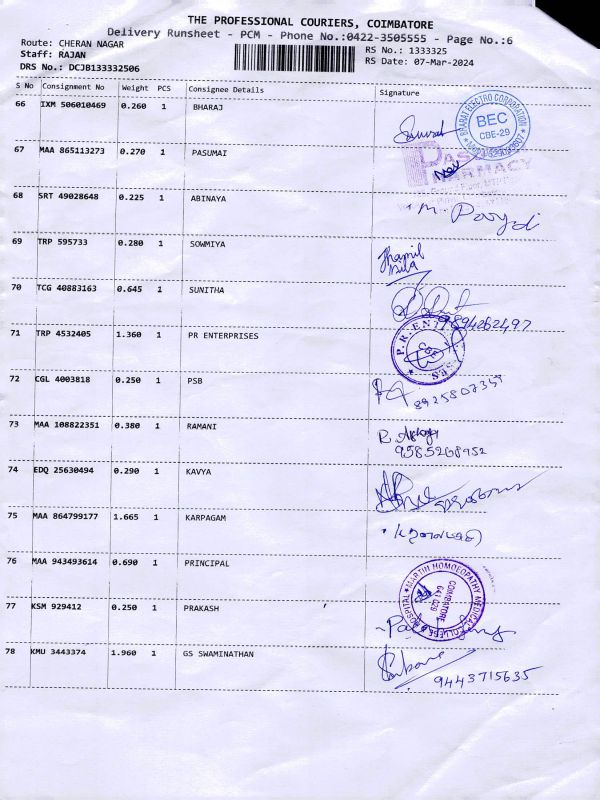 THE PROFESSIONAL COURIERS, COIMBATORE
Delivery Runsheet - PCM - Phone No.:0422-3505555 - Page No.:6
Route: CHERAN NAGAR RS No.: 1333325
Staff: RAJAN RS Date: 07-Mar-2024
DRS No.: DCJB133332506
S No Consignment No Weight PCS Consignee Details Signature
66 IXM 506010469 0.260 1 BHARAJ
BHARAT ELECTRO CORPORATION
BEC
CBE-29
67 MAA 865113273 0.270 1 PASUMAI
PHARMACY
68 SRT 49028648 0.225 1 ABINAYA
69 TRP 595733 0.280 1 SOWMIYA
70 TCG 40883163 0.645 1 SUNITHA
9894262497
71 TRP 4532405 1.360 1 PR ENTERPRISES
CBE
72 CGL 4003818 0.250 1 PSB
8925807359
73 MAA 108822351 0.380 1 RAMANI
9585268952
74 EDQ 25630494 0.290 1 KAVYA
75 MAA 864799177 1.665 1 KARPAGAM
76 MAA 943493614 0.690 1 PRINCIPAL
MARTIN HOMOEOPATHY MEDICAL COLLEGE HOSPITAL
COIMBATORE
641 029
77 KSM 929412 0.250 1 PRAKASH
78 KMU 3443374 1.960 1 GS SWAMINATHAN
9443715635